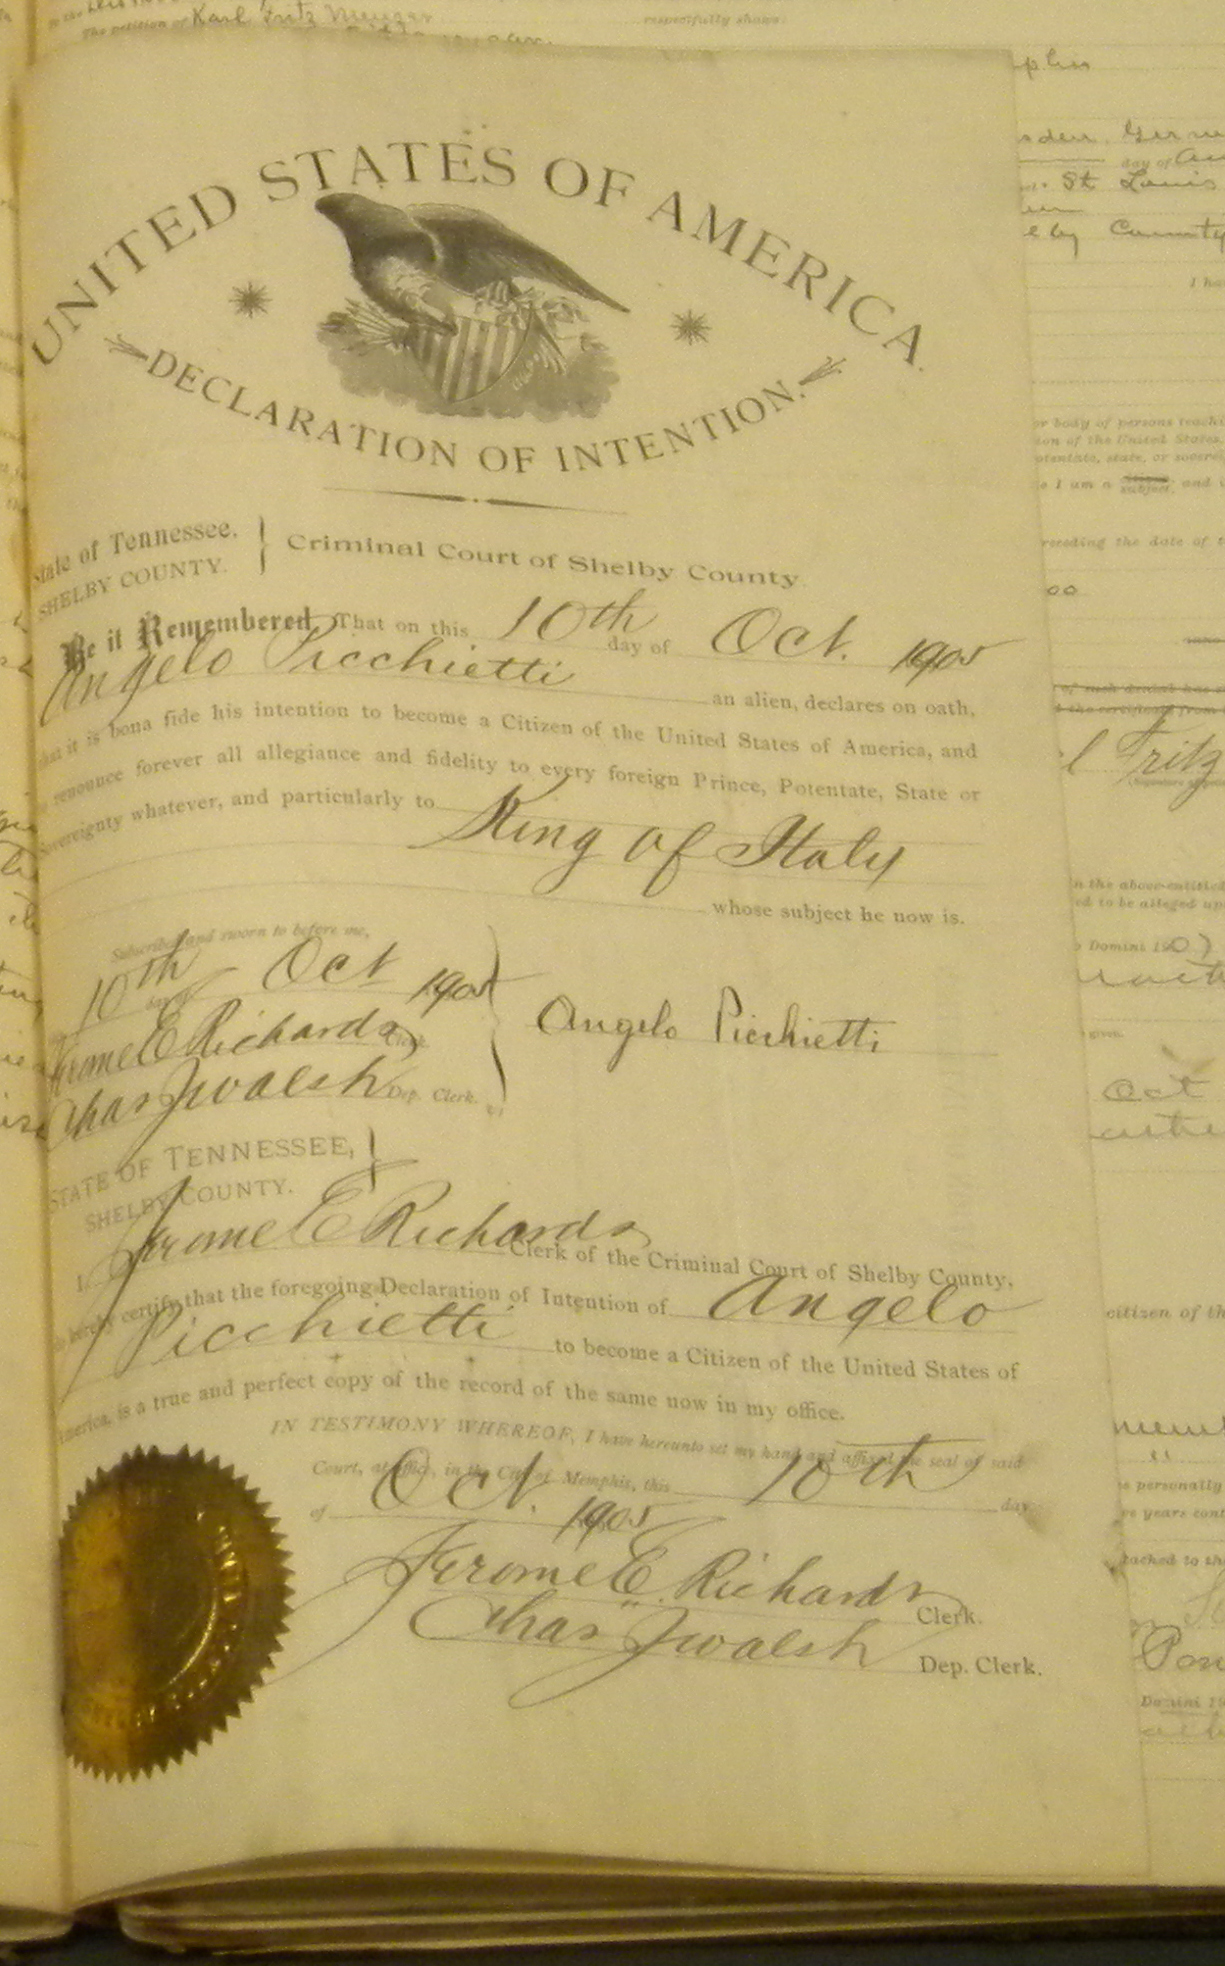 The petition of Karl Fritz
respectfully shows:
UNITED STATES OF AMERICA.
DECLARATION OF INTENTION.
State of Tennessee.
SHELBY COUNTY.
Criminal Court of Shelby County.
Be it Remembered, That on this 10th day of Oct. 1905
Angelo Picchietti an alien, declares on oath,
that it is bona fide his intention to become a Citizen of the United States of America, and
to renounce forever all allegiance and fidelity to every foreign Prince, Potentate, State or
Sovereignty whatever, and particularly to King of Italy
whose subject he now is.
Subscribed and sworn to before me,
10th day of Oct 1905
Jerome E Richards Clerk.
Chas J Walsh Dep. Clerk.
Angelo Picchietti
STATE OF TENNESSEE,
SHELBY COUNTY.
I, Jerome E Richards Clerk of the Criminal Court of Shelby County,
do hereby certify that the foregoing Declaration of Intention of Angelo
Picchietti to become a Citizen of the United States of
America, is a true and perfect copy of the record of the same now in my office.
IN TESTIMONY WHEREOF, I have hereunto set my hand and affixed the seal of said
Court, at office, in the City of Memphis, this 10th day
of Oct. 1905
Jerome E. Richards Clerk.
Chas J Walsh Dep. Clerk.
day of
St Louis
County
I ha
or body of persons teachi
ion of the United States,
otentate, state, or sovere
I am a subject, and
receding the date of
oo
Fritz
n the above-entitled
ed to be alleged up
Domini 1907
given.
Oct
citizen of th
personally
years cont
tached to the
Domini 19